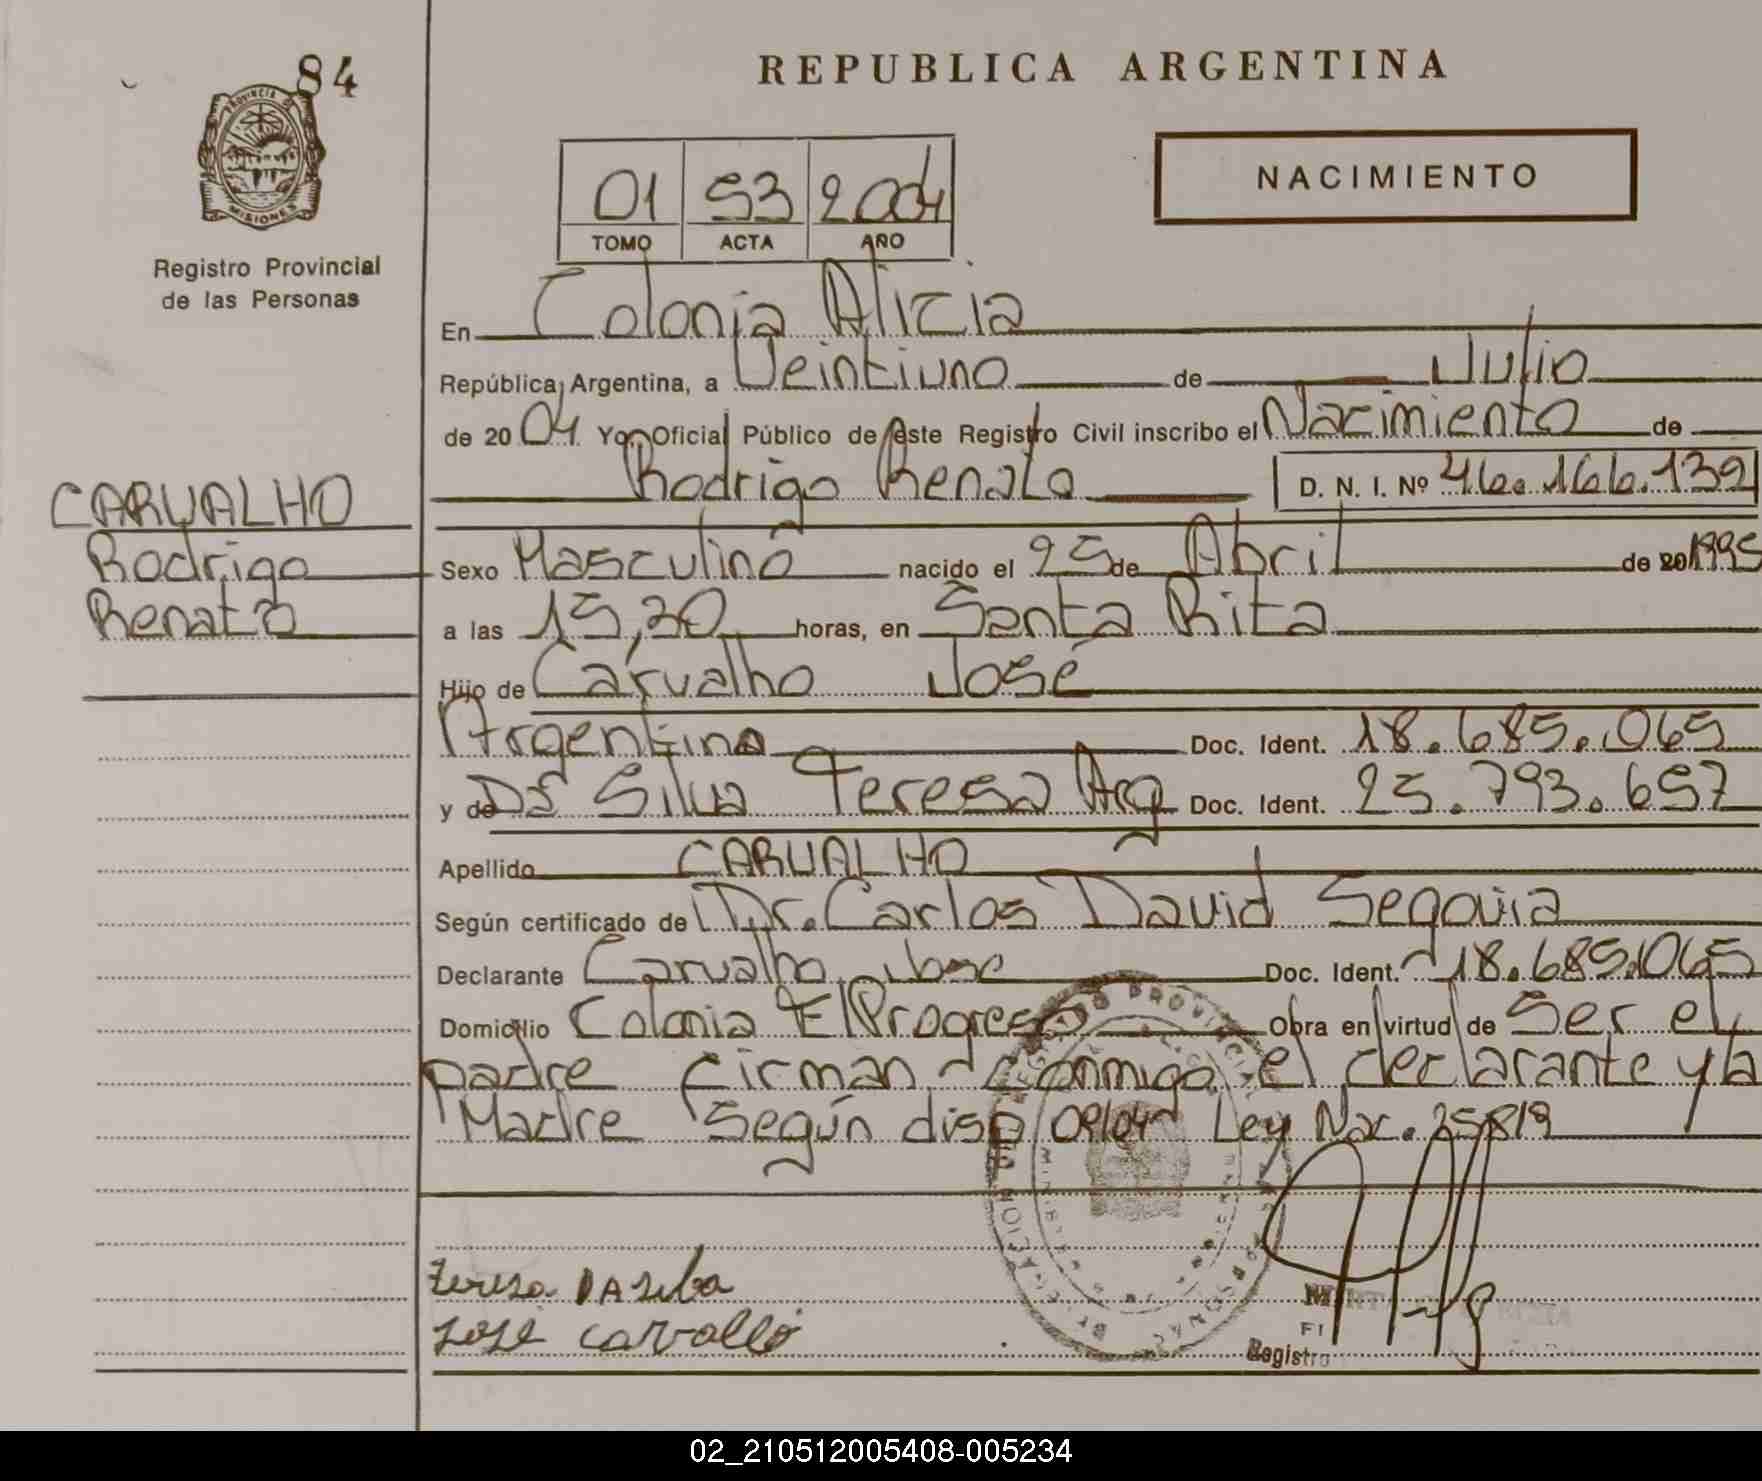 84
REPUBLICA ARGENTINA
NACIMIENTO
PROVINCIA DE
MISIONES
Registro Provincial
de las Personas
01 53 2004
TOMO ACTA AÑO
En Colonia Alicia
República Argentina, a Veintiuno de Julio
de 2004 Yo, Oficial Público de este Registro Civil inscribo el Nacimiento de
Rodrigo Renato D. N. I. Nº 46.166.139
CARVALHO
Rodrigo
Renato
Sexo Masculino nacido el 25 de Abril de 20 1995
a las 15,20 horas, en Santa Rita
Hijo de Carvalho José
Argentino Doc. Ident. 18.685.065
y de Da Silva Teresa Arg Doc. Ident. 25.793.657
Apellido CARVALHO
Según certificado de Dr. Carlos David Segovia
Declarante Carvalho Jose Doc. Ident. 18.685.065
Domicilio Colonia El Progreso Obra en virtud de Ser el
padre Firman conmigo el declarante y la
Madre Según disp 09/04 Ley Nac. 25819
teresa DA silba
José carvallo
Registro
02_210512005408-005234